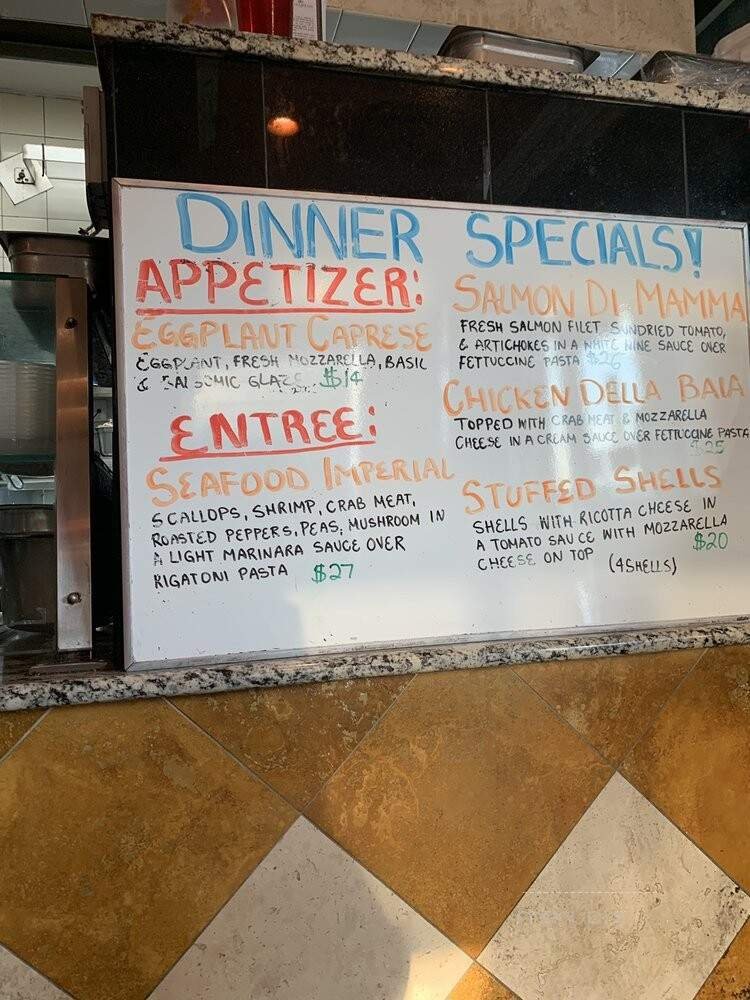 DINNER SPECIALS!
APPETIZER:
EGGPLANT CAPRESE
EGGPLANT, FRESH MOZZARELLA, BASIL
& GLAZE $14
ENTREE:
SEAFOOD IMPERIAL
SCALLOPS, SHRIMP, CRAB MEAT,
ROASTED PEPPERS, PEAS, MUSHROOM IN
A LIGHT MARINARA SAUCE OVER
RIGATONI PASTA $27
SALMON DI MAMMA
FRESH SALMON FILET, SUNDRIED TOMATO,
& ARTICHOKES IN A WHITE WINE SAUCE OVER
FETTUCCINE PASTA $26
CHICKEN DELLA BAIA
TOPPED WITH CRAB MEAT & MOZZARELLA
CHEESE IN A CREAM SAUCE OVER FETTUCCINE PASTA
$25
STUFFED SHELLS
SHELLS WITH RICOTTA CHEESE IN
A TOMATO SAUCE WITH MOZZARELLA
CHEESE ON TOP (4 SHELLS) $20